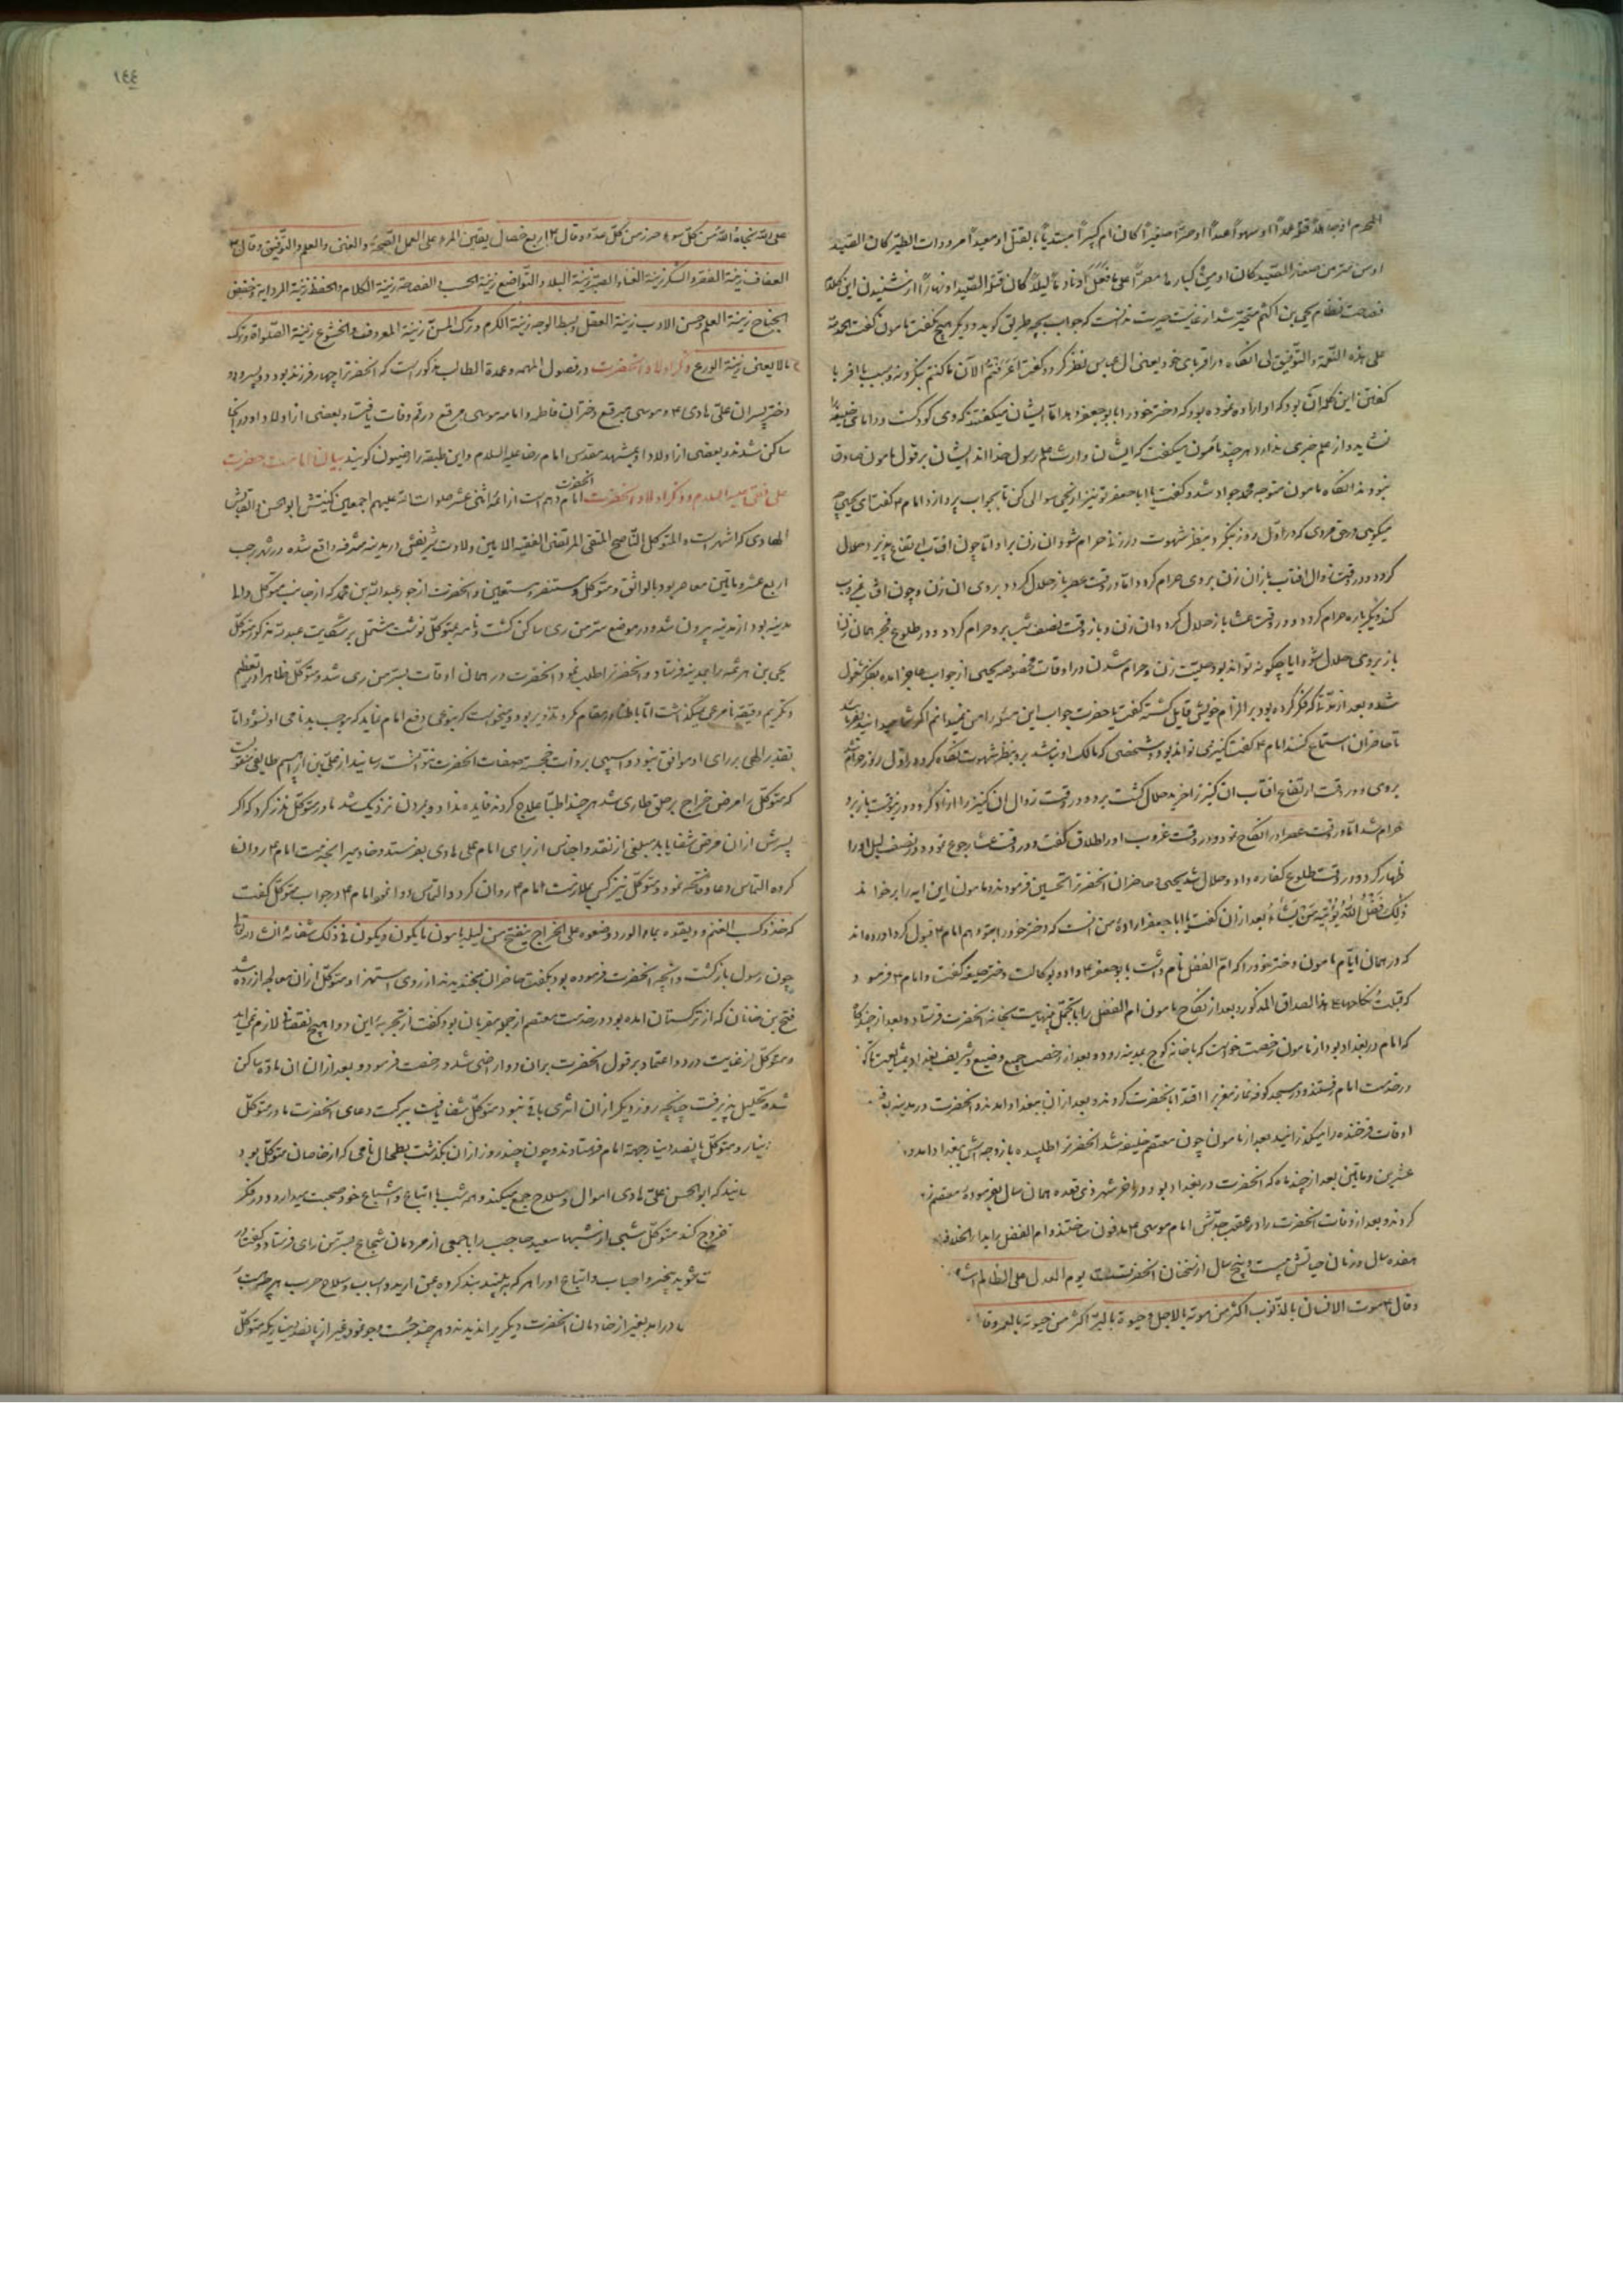 المحرم او جاهلا قتله عمدا او سهوا عبدا او حرا صغيرا كان ام كبيرا مبتديا بقتل او معيدا من ذوات الطير كان الصيد
او من غيره من صغار الصيد كان او من كبارها مصرا على ما فعل او نادما ليلا كان قتله الصيد او نهارا از شنيدن اين كلام
فصاحت نظام يحيى بن اكثم متحير شد از غايت حيرت ندانست كه جواب بچه طريق كويد و ديكر هيچ نكفت مامون كفت الحمد لله
على هذه النعمة والتوفيق لى انكاه در اقرباى خود يعنى ال عباس نظر كرد و كفت اعرفتم الآن ما كنتم تنكرونه و سبب
كفتن اين كلمه آن بود كه او اراده نموده بود كه دختر خود را بابو جعفر دهد اما ايشان ميكفتند كه وى كودكست و داماى خليفه
نشايد و از علم خبرى ندارد هر چند مأمون ميكفت كه ايشان وارث علم رسول خدا اند ايشان بر قول مامون صادق
نبودند انكاه مامون متوجه محمد جواد شد و كفت يا ابا جعفر تو نيز از يحيى سوالى كن تا بجواب پردازد امام ع كفت اى يحيى چه
ميكويى در حق مردى كه در اول روز بنكرد بنظر شهوت در زنى حرام شود ان زن برو اما چون افتاب ارتفاع پذيرد حلال
كردد و در وقت زوال افتاب باز ان زن بروى حرام كردد اما در وقت عصر باز حلال كردد بروى ان زن و چون افتاب غروب
كند ديكر باره حرام كردد و در وقت عشا باز حلال كردد ان زن و باز وقت نصف شب برو حرام كردد و در طلوع فجر همان زن
باز بروى حلال شود ايا چكونه تواند بود حليت زن و حرام شدن در اوقات مخصوصه يحيى از جواب عاجز امده بفكر مشغول
شد و بعد از مدتى كه فكر كرده بود بر الزام خويش قايل كشته كفت يا حضرت جواب اين مسئله را من نميدانم اكر شما ميدانيد بفرماييد
تا حاضران استماع كنند امام ع كفت كنيزى تواند بود و شخصى كه مالك او نباشد برو بنظر شهوت نكاه كرده در اول روز حرام شد
بروى و در وقت ارتفاع افتاب ان كنيز را خريد حلال كشت برو و در وقت زوال ان كنيز را ازاد كرد و در وقت باز برو
حرام شد اما در وقت عصر او را نكاح نمود و در وقت غروب او را طلاق كفت و در وقت عشا رجوع نمود و در نصف ليل او را
ظهار كرد و در وقت طلوع كفاره داد و حلال شد يحيى و حاضران انحضرت را تحسين فرمودند و مامون اين ايه را برخواند
ذلك فضل الله يؤتيه من يشاء بعد ازان كفت يا ابا جعفر اراده من انست كه دختر خود را بتو دهم امام ع قبول كرد اورده اند
كه در همان ايام مامون دختر خود را كه ام الفضل نام داشت بابو جعفر ع داد و بوكالت دختر خليفه كفت و امام ع فرمود
كه قبلت نكاحها على هذا الصداق المذكور و بعد از نكاح مامون ام الفضل را با تجمل بينهايت بخانه انحضرت فرستاد و بعد از چندكاه
كه امام در بغداد بود از مامون رخصت خواست كه با خانه كوچ بمدينه رود و بعد از رخصت جميع وضيع و شريف بغداد بمشايعت
در خدمت امام رفتند و در مسجد كوفه نماز مغرب را اقتدا بانحضرت كردند و بعد ازان ببغداد امدند و انحضرت در مدينه
اوقات فرخنده را ميكذرانيد بعد از مامون چون معتصم خليفه شد انحضرت را طلبيده با زوجه اش ببغداد امد و
عشرين و مايتين بعد از چند ماه كه انحضرت در بغداد بود در اخر شهر ذى قعده همان سال بفرموده معتصم
كردند و بعد از وفات انحضرت را در عقب جدش امام موسى ع مدفون ساختند و ام الفضل را بدار الخلافه
هفده سال و زمان حياتش بيست و پنج سال از سخنان انحضرتست يوم العدل على الظالم اشد
و قال ع موت الانسان بالذنوب اكثر من موته بالاجل و حيوته بالبر اكثر من حيوته بالعمر و قال
١٤٤
على الله نجاة الله من كل سوء و حرز من كل عدو و قال ع اربع خصال يعين المرء على العمل الصحة والغنى والعلم والتوفيق و قال ع
العفاف زينة الفقر والشكر زينة الغنا والصبر زينة البلاء والتواضع زينة الحسب والفصاحة زينة الكلام والحفظ زينة الرواية و خفض
الجناح زينة العلم و حسن الادب زينة العقل و بسط الوجه زينة الكرم و ترك المن زينة المعروف والخشوع زينة الصلوة و ترك
ما لا يعنى زينة الورع ذكر اولاد انحضرت در فصول المهمه و عمدة الطالب مذكور است كه انحضرت را چهار فرزند بود دو پسر و دو
دختر پسران على هادى ع و موسى مبرقع و دختران فاطمه و امامه موسى مبرقع در قم وفات يافت و بعضى از اولاد او در انجا
ساكن شدند و بعضى از اولاد او بمشهد مقدس امام رضا عليه السلام و اين طبقه را رضويون كويند بيان امامت حضرت
على نقى عليه السلام و ذكر اولاد انحضرت انحضرت امام دهم است از ائمه اثنى عشر صلوات الله عليهم اجمعين كنيتش ابو الحسن و القابش
الهادى كه اشهر است و المتوكل الناصح المتقى المرتضى الفقيه الامين ولادت شريفش در مدينه مشرفه واقع شده در شهر رجب
اربع عشر و مايتين معاصر بود با الواثق و متوكل و مستنصر و مستعين و انحضرت از جور عبد الله بن محمد كه از جانب متوكل والى
مدينه بود از مدينه بيرون شد و در موضع سر من رى ساكن كشت و نامه بمتوكل نوشت مشتمل بر شكايت عبد الله مذكور متوكل
يحيى بن هرثمه را بمدينه فرستاد و انحضرت را طلب نمود انحضرت در همان اوقات بسر من رى شد و متوكل ظاهرا در تعظيم
و تكريم دقيقه نامرعى نميكذاشت اما باطنا در مقام مكر و تذوير بود و ميخواست كه بنوعى دفع امام نمايد كه موجب بدنامى او نشود اما
تقدير الهى بر راى او موافق نبود و اسيبى بر ذات خجسته صفات انحضرت نتوانست رسانيد از على بن ابراهيم طايفى منقول است
كه متوكل را مرض خراج بر حلق طارى شد هر چند اطبا علاج كردند فايده نداد و بمردن نزديك شد مادر متوكل نذر كرد كه اكر
پسرش ازان مرض شفا يابد مبلغى از نقد و اجناس از براى امام على هادى بفرستد و خادمى را بخدمت امام ع روان
كرده التماس دعا و فاتحه نمود و متوكل نيز كسى بملازمت امام ع روان كرد و التماس دوا نمود امام ع در جواب متوكل كفت
كه خذو كسب الغنم و ديفوه بماء الورد و ضعوه على الخراج ينفتح من ليله باهون ما يكون و يكون فى ذلك شفائه انشاء الله تعالى
چون رسول بازكشت و انچه انحضرت فرموده بود بكفت حاضران بخنديدند از روى استهزا و متوكل ازان معالجه ازرده شد
فتح بن خاقان كه از تركستان امده بود و در خدمت معتصم از جمله مقربان بود كفت از تجربه اين دوا هيچ نقصانى لازم نمى ايد
و متوكل از غايت درد و اعتماد بر قول انحضرت بران دوا راضى شد و رخصت فرمود و بعد ازان ان ماده ساكن
شد و تحليل پذيرفت چنانچه روز ديكر ازان اثرى باقى نبود متوكل شفا يافت ببركت دعاى انحضرت مادر متوكل
دينار و متوكل پانصد دينار جهة امام فرستادند و چون چند روز ازان بكذشت بطحاى نامى كه از خاصان متوكل بود
رسانيد كه ابو الحسن على هادى اموال و سلاح جمع ميكند و هر شب با اتباع و اشياع خود صحبت ميدارد و در فكر
خروج كند متوكل شبى از شبها سعيد حاجب را با جمعى از مردمان شجاع بسر من راى فرستاد و كفت
شويد بيخبر و احباب و اتباع او را هر كه به بينيد بند كرده بمن اريد و اسباب و سلاح حرب هر چه هست
در امد بغير از خادمان انحضرت ديكرى را نديدند و هر چند جست و جو نمود غير از پانصد ديناريكه متوكل